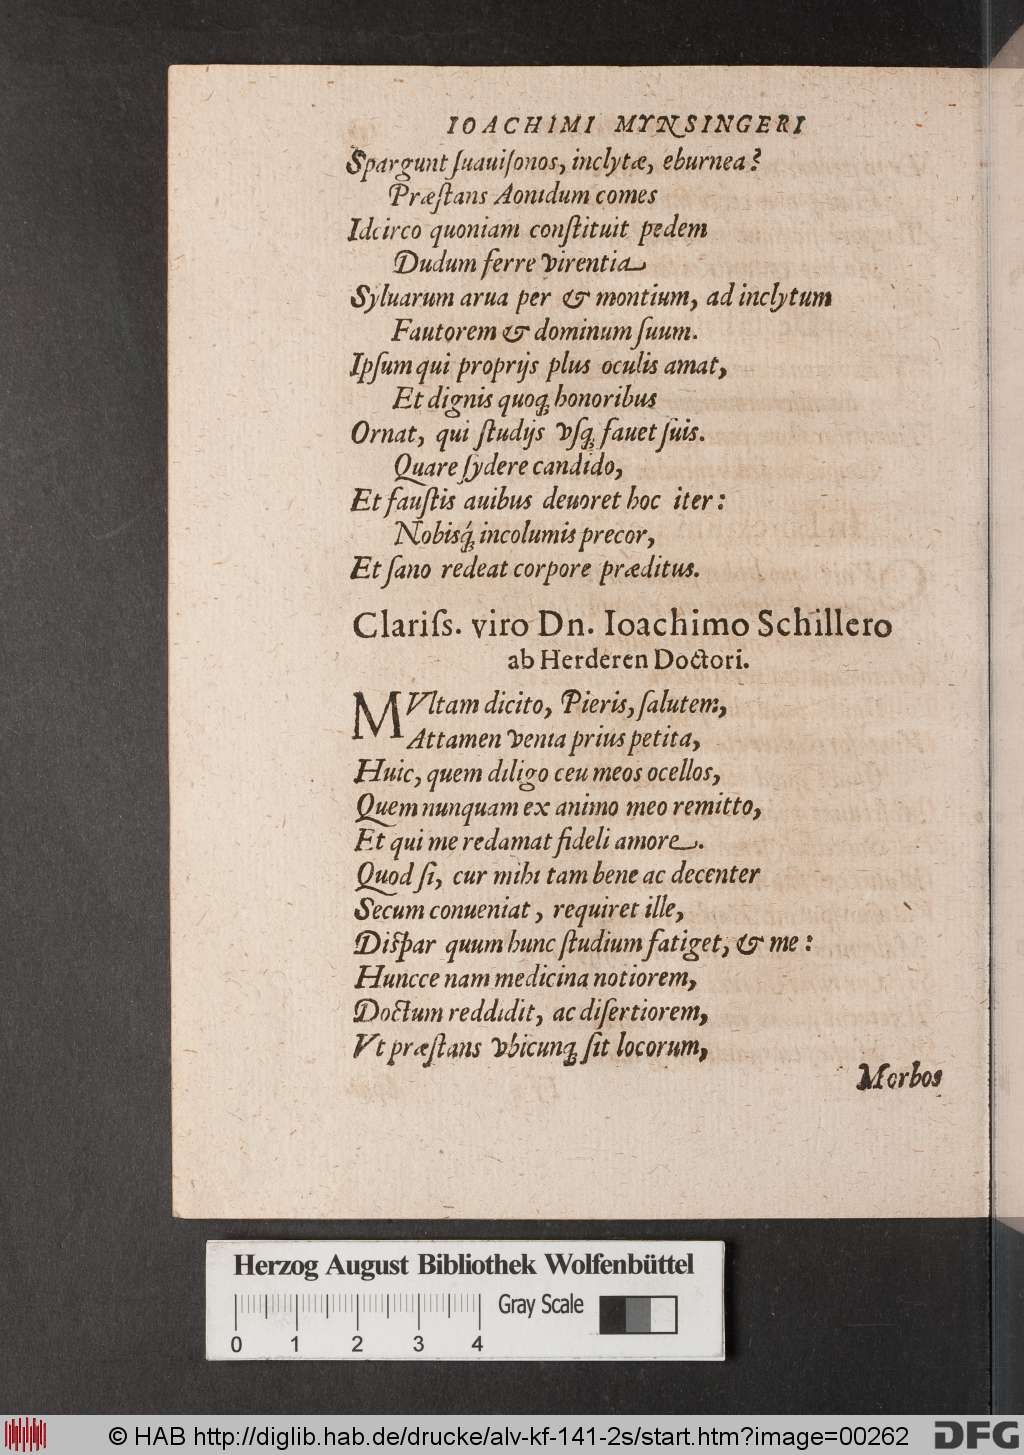 IOACHIMI MYNSINGERI
Spargunt ſuauiſonos, inclytæ, eburnea?
Præſtans Aonidum comes
Idcirco quoniam conſtituit pedem
Dudum ferre virentia
Syluarum arua per & montium, ad inclytum
Fautorem & dominum ſuum.
Ipſum qui proprijs plus oculis amat,
Et dignis quoq; honoribus
Ornat, qui ſtudijs vſq; fauet ſuis.
Quare ſydere candido,
Et fauſtis auibus deuoret hoc iter:
Nobisq́; incolumis precor,
Et ſano redeat corpore præditus.
Clariſs. viro Dn. Ioachimo Schillero
ab Herderen Doctori.
MVltam dicito, Pieris, ſalutem,
Attamen venia prius petita,
Huic, quem diligo ceu meos ocellos,
Quem nunquam ex animo meo remitto,
Et qui me redamat fideli amore.
Quod ſi, cur mihi tam bene ac decenter
Secum conueniat, requiret ille,
Diſpar quum hunc ſtudium fatiget, & me:
Huncce nam medicina notiorem,
Doctum reddidit, ac diſertiorem,
Vt præſtans vbicunq; ſit locorum,
Morbos
Herzog August Bibliothek Wolfenbüttel
Gray Scale
0 1 2 3 4
© HAB http://diglib.hab.de/drucke/alv-kf-141-2s/start.htm?image=00262
DFG